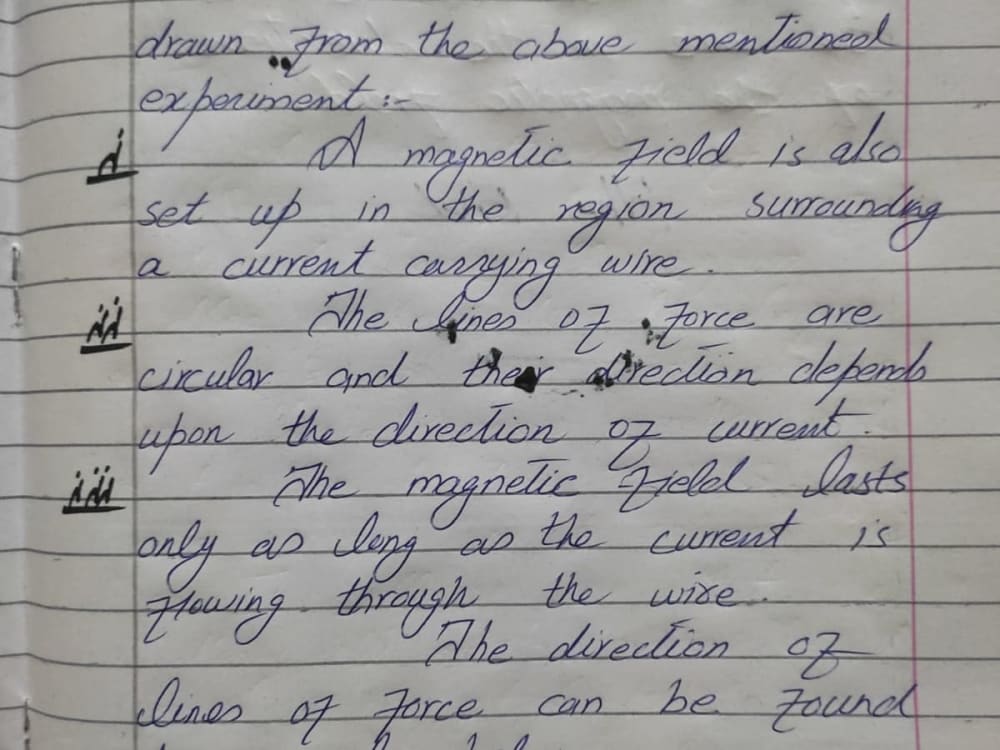 drawn from the above mentioned
experiment :-
i A magnetic field is also
set up in the region surrounding
a current carrying wire.
ii The lines of force are
circular and their direction depends
upon the direction of current.
iii The magnetic field lasts
only as long as the current is
flowing through the wire.
The direction of
lines of force can be found